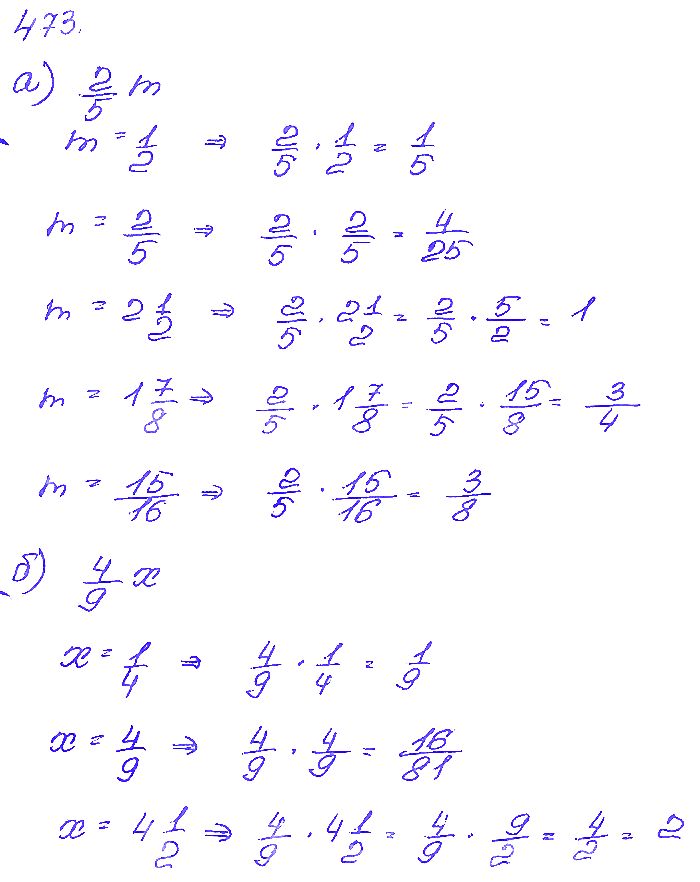 473.
а) 2/5 m
m = 1/2 ⇒ 2/5 · 1/2 = 1/5
m = 2/5 ⇒ 2/5 · 2/5 = 4/25
m = 2 1/2 ⇒ 2/5 · 2 1/2 = 2/5 · 5/2 = 1
m = 1 7/8 ⇒ 2/5 · 1 7/8 = 2/5 · 15/8 = 3/4
m = 15/16 ⇒ 2/5 · 15/16 = 3/8
б) 4/9 x
x = 1/4 ⇒ 4/9 · 1/4 = 1/9
x = 4/9 ⇒ 4/9 · 4/9 = 16/81
x = 4 1/2 ⇒ 4/9 · 4 1/2 = 4/9 · 9/2 = 4/2 = 2